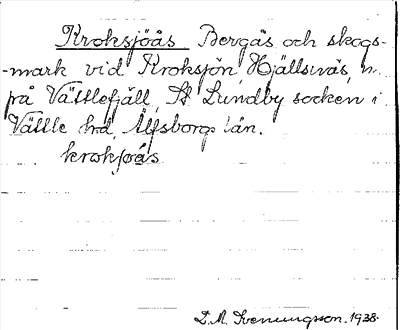 Kroksjöås Bergås och skogs-
-mark vid Kroksjön Hjällsnäs, n.
på Vättlefjäll, St Lundby socken i
Vättle hd, Älfsborgs län.
kroksjoås
D.A. Svenungsson. 1938.